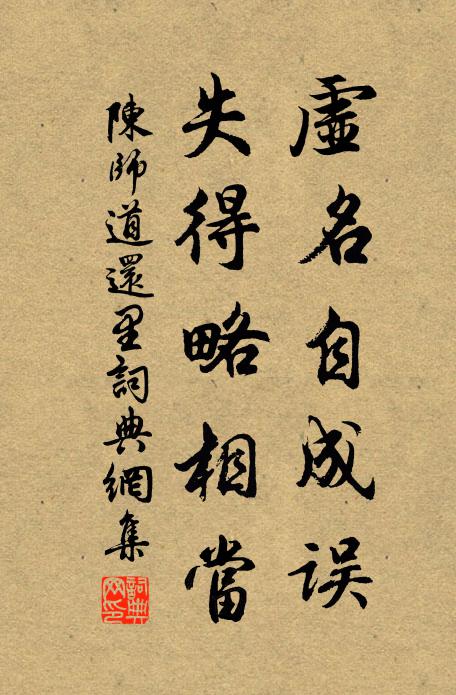 虛名自成误
失得略相當
陳師道還里詞典網集
詞典网印